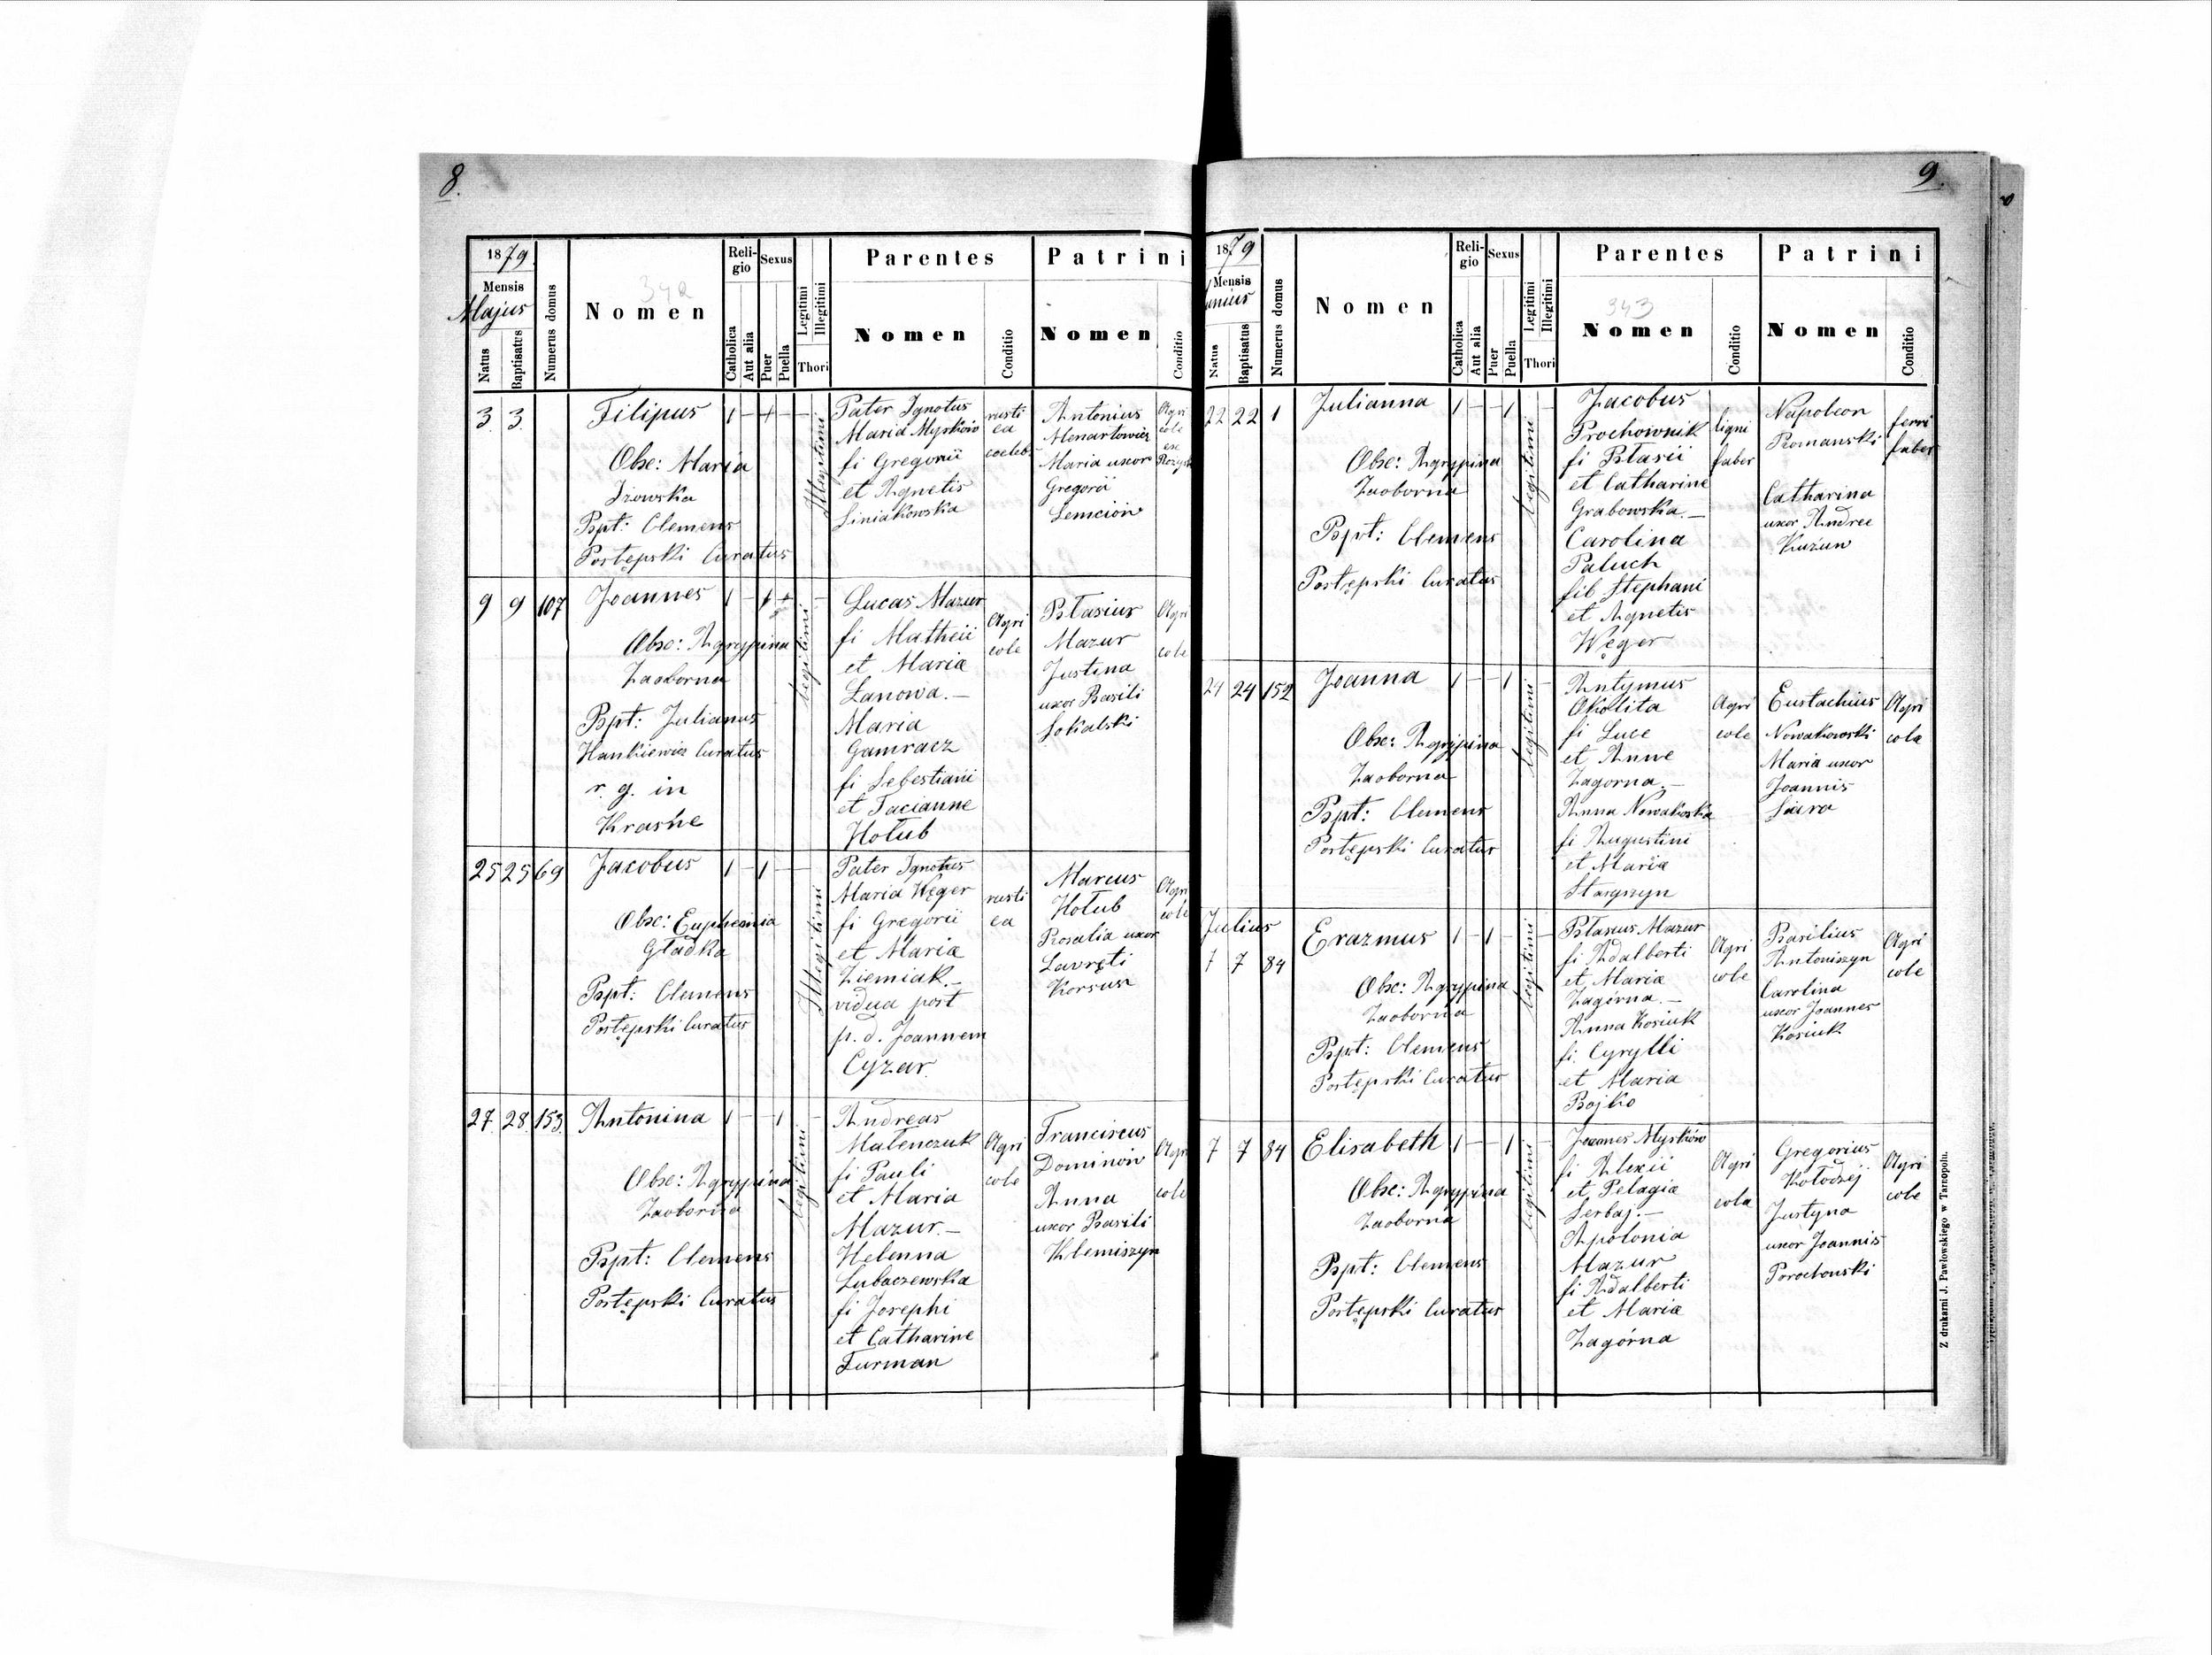 8.
1879
Mensis
Majus
Natus
Baptisatus
Numerus domus
Nomen
Religio
Catholica
Aut alia
Sexus
Puer
Puella
Legitimi
Illegitimi
Thori
Parentes
Nomen
Conditio
Patrini
Nomen
Conditio
3. 3.
Filipus
Obse: Maria
Izowska
Bpt: Clemens
Postępski Curatus
Illegitimi
Pater Ignotus
Maria Myśków
fi Gregorii
et Agnetis
Siniakowska
rusti
ca
coelebs
Antonius
Menartowicz
Maria uxor
Gregorii
Semcion
Agri
cole
9 9 107
Joannes
Obse: Agrypina
Zaoborna
Bpt: Julianus
Hankiewicz Curatus
r. g. in
Krasne
legitimi
Lucas Mazur
fi Matheii
et Maria
Łanowa.—
Maria
Gamracz
fi Sebestiani
et Tacianne
Hołub
Agri
cole
Błasius
Mazur
Justina
uxor Basili
Sokalski
Agri
cole
25 25 69
Jacobus
Obse: Euphemia
Gładka
Bpt: Clemens
Postępski Curatus
Illegitimi
Pater Ignotus
Maria Węger
fi Gregorii
et Maria
Ziemiak.—
vidua post
p. d. Joannem
Cyzar
rusti
ca
Marcus
Hołub
Rosalia uxor
Lavręti
Korsun
Agri
cole
27. 28. 153.
Antonina
Obse: Agrypina
Zaoborna
Bpt: Clemens
Postępski Curatus
legitimi
Andreas
Małenczuk
fi Pauli
et Maria
Mazur.—
Helenna
Lubaczewska
fi Josephi
et Catharine
Furman
Agri
cole
Franciscus
Dominów
Anna
uxor Basili
Klemiszyn
Agri
cole
9.
1879
Mensis
Junius
Natus
Baptisatus
Numerus domus
Nomen
Religio
Catholica
Aut alia
Sexus
Puer
Puella
Legitimi
Illegitimi
Thori
Parentes
343
Nomen
Conditio
Patrini
Nomen
Conditio
22 22 1
Julianna
Obse: Agrypina
Zaoborna
Bpt: Clemens
Postępski Curatus
legitimi
Jacobus
Prochownik
fi Błasii
et Catharine
Grabowska.—
Carolina
Paluch
fil Stephani
et Agnetis
Węger
ligni
faber
Napoleon
Romanski
Catharina
uxor Andree
Kuzun
ferri
faber
24 24 152
Joanna
Obse: Agrypina
Zaoborna
Bpt: Clemens
Postępski Curatus
legitimi
Antymus
Okolita
fi Luce
et Anne
Zagorna.—
Anna Nowakoska
fi Augustini
et Maria
Stargzyn
Agri
cole
Eustachius
Nowakowski
Maria uxor
Joannis
Agri
cola
Julius
7 7 84
Erazmus
Obse: Agrypina
Zaoborna
Bpt: Clemens
Postępski Curatus
legitimi
Błasius Mazur
fi Adalberti
et Maria
Zagórna.—
Anna Kosiuk
fi. Cyrylli
et Maria
Bojko
Agri
cole
Basilius
Antoniszyn
Carolina
uxor Joannes
Kosiuk
Agri
cole
7 7 84
Elisabeth
Obse: Agrypina
Zaoborna
Bpt: Clemens
Postępski Curatus
legitimi
Joannes Myśków
fi Alexii
et Pelagia
Serbaj.—
Apolonia
Mazur
fi Adalberti
et Maria
Zagórna
Agri
cola
Gregorius
Kołodzéj
Justyna
uxor Joannis
Porochonski
Agri
cole
Z drukarni J. Pawłowskiego w Tarnopolu.